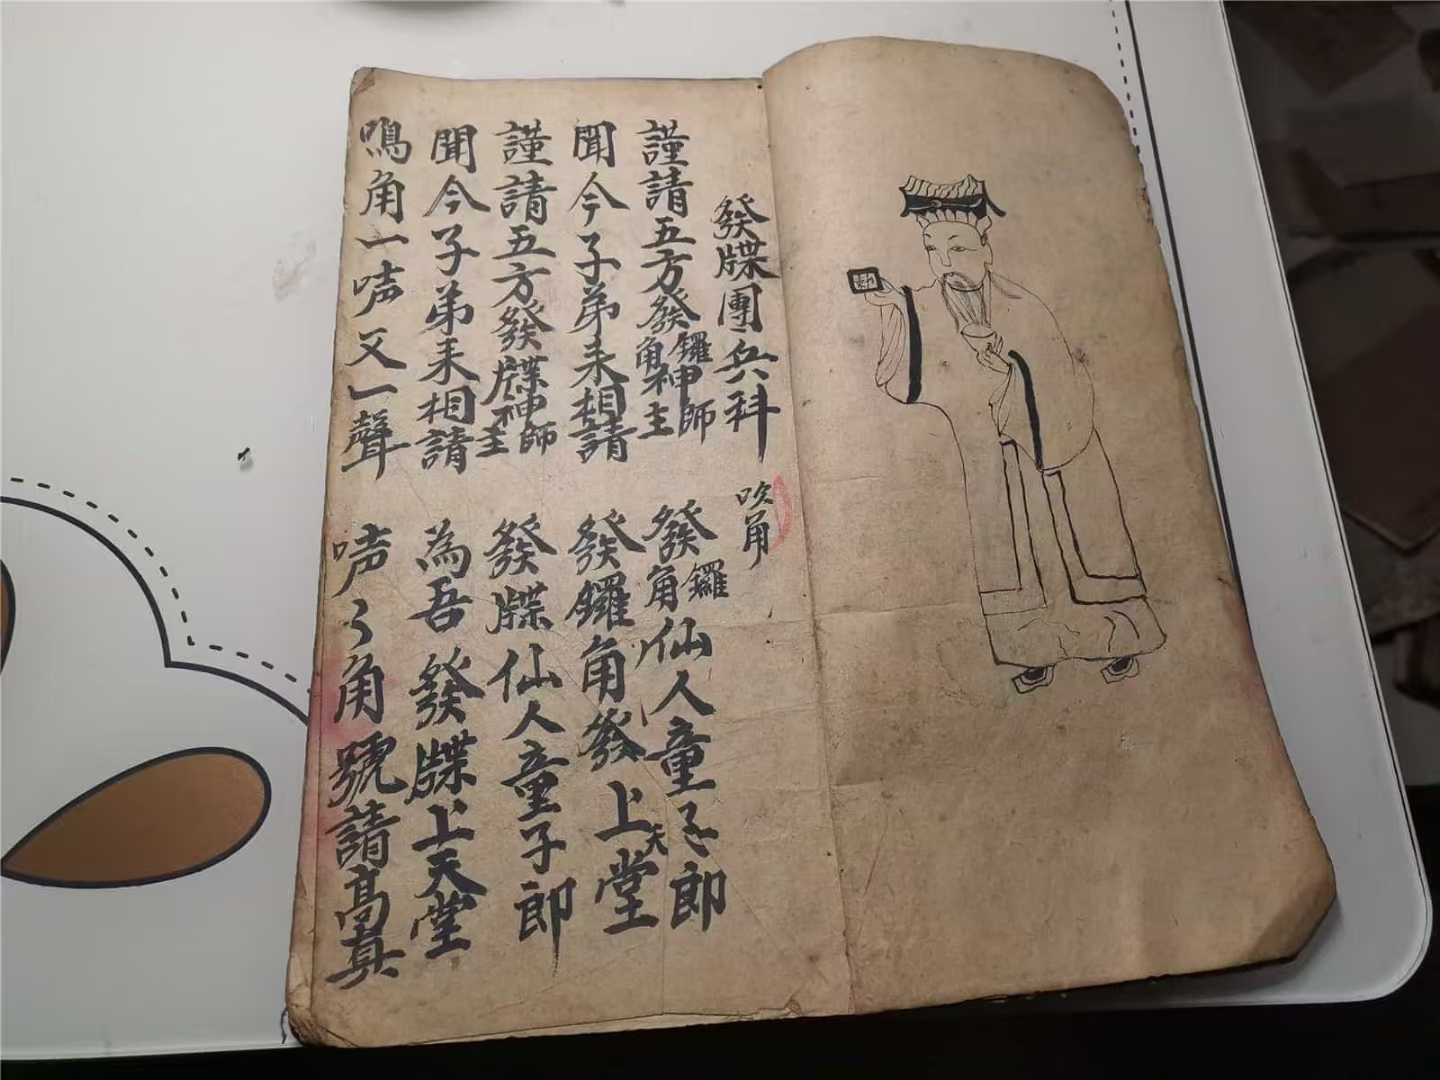 發牒團兵科 吹角
謹請五方發鑼角神師主 發鑼角仙人童子郎
聞今子弟来相請 發鑼角發上天堂
謹請五方發牒神師主 發牒仙人童子郎
聞今子弟来相請 為吾發牒上天堂
鳴角一唥又一聲 唥々角號請高真